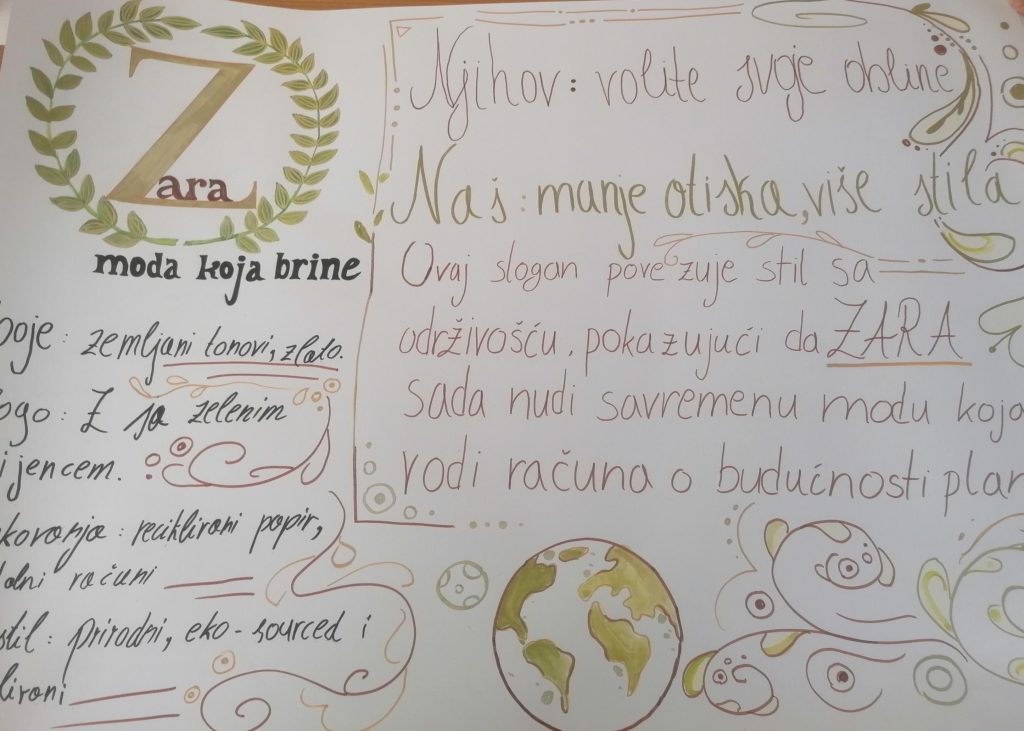 Zara
moda koja brine
boje: zemljani tonovi, zlato.
logo: Z sa zelenim
vijencem.
kovanja: reciklirani papir,
računi
stil: prirodni, eko-sourced i
lirani
Njihov: volite svoje obline
Naš: manje otiska, više stila
Ovaj slogan povezuje stil sa
održivošću, pokazujući da ZARA
sada nudi savremenu modu koja
vodi računa o budućnosti plan